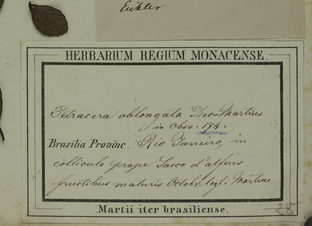 Eichler
HERBARIUM REGIUM MONACENSE.
Tetracera oblongata Dec. Martius
in Obs. 194.
Brasilia Provinc. Rio Janeiro, in
colliculo prope Sacco d'alferes
fructibus maturis Octobr. legt. Martius
Martii iter brasiliense.